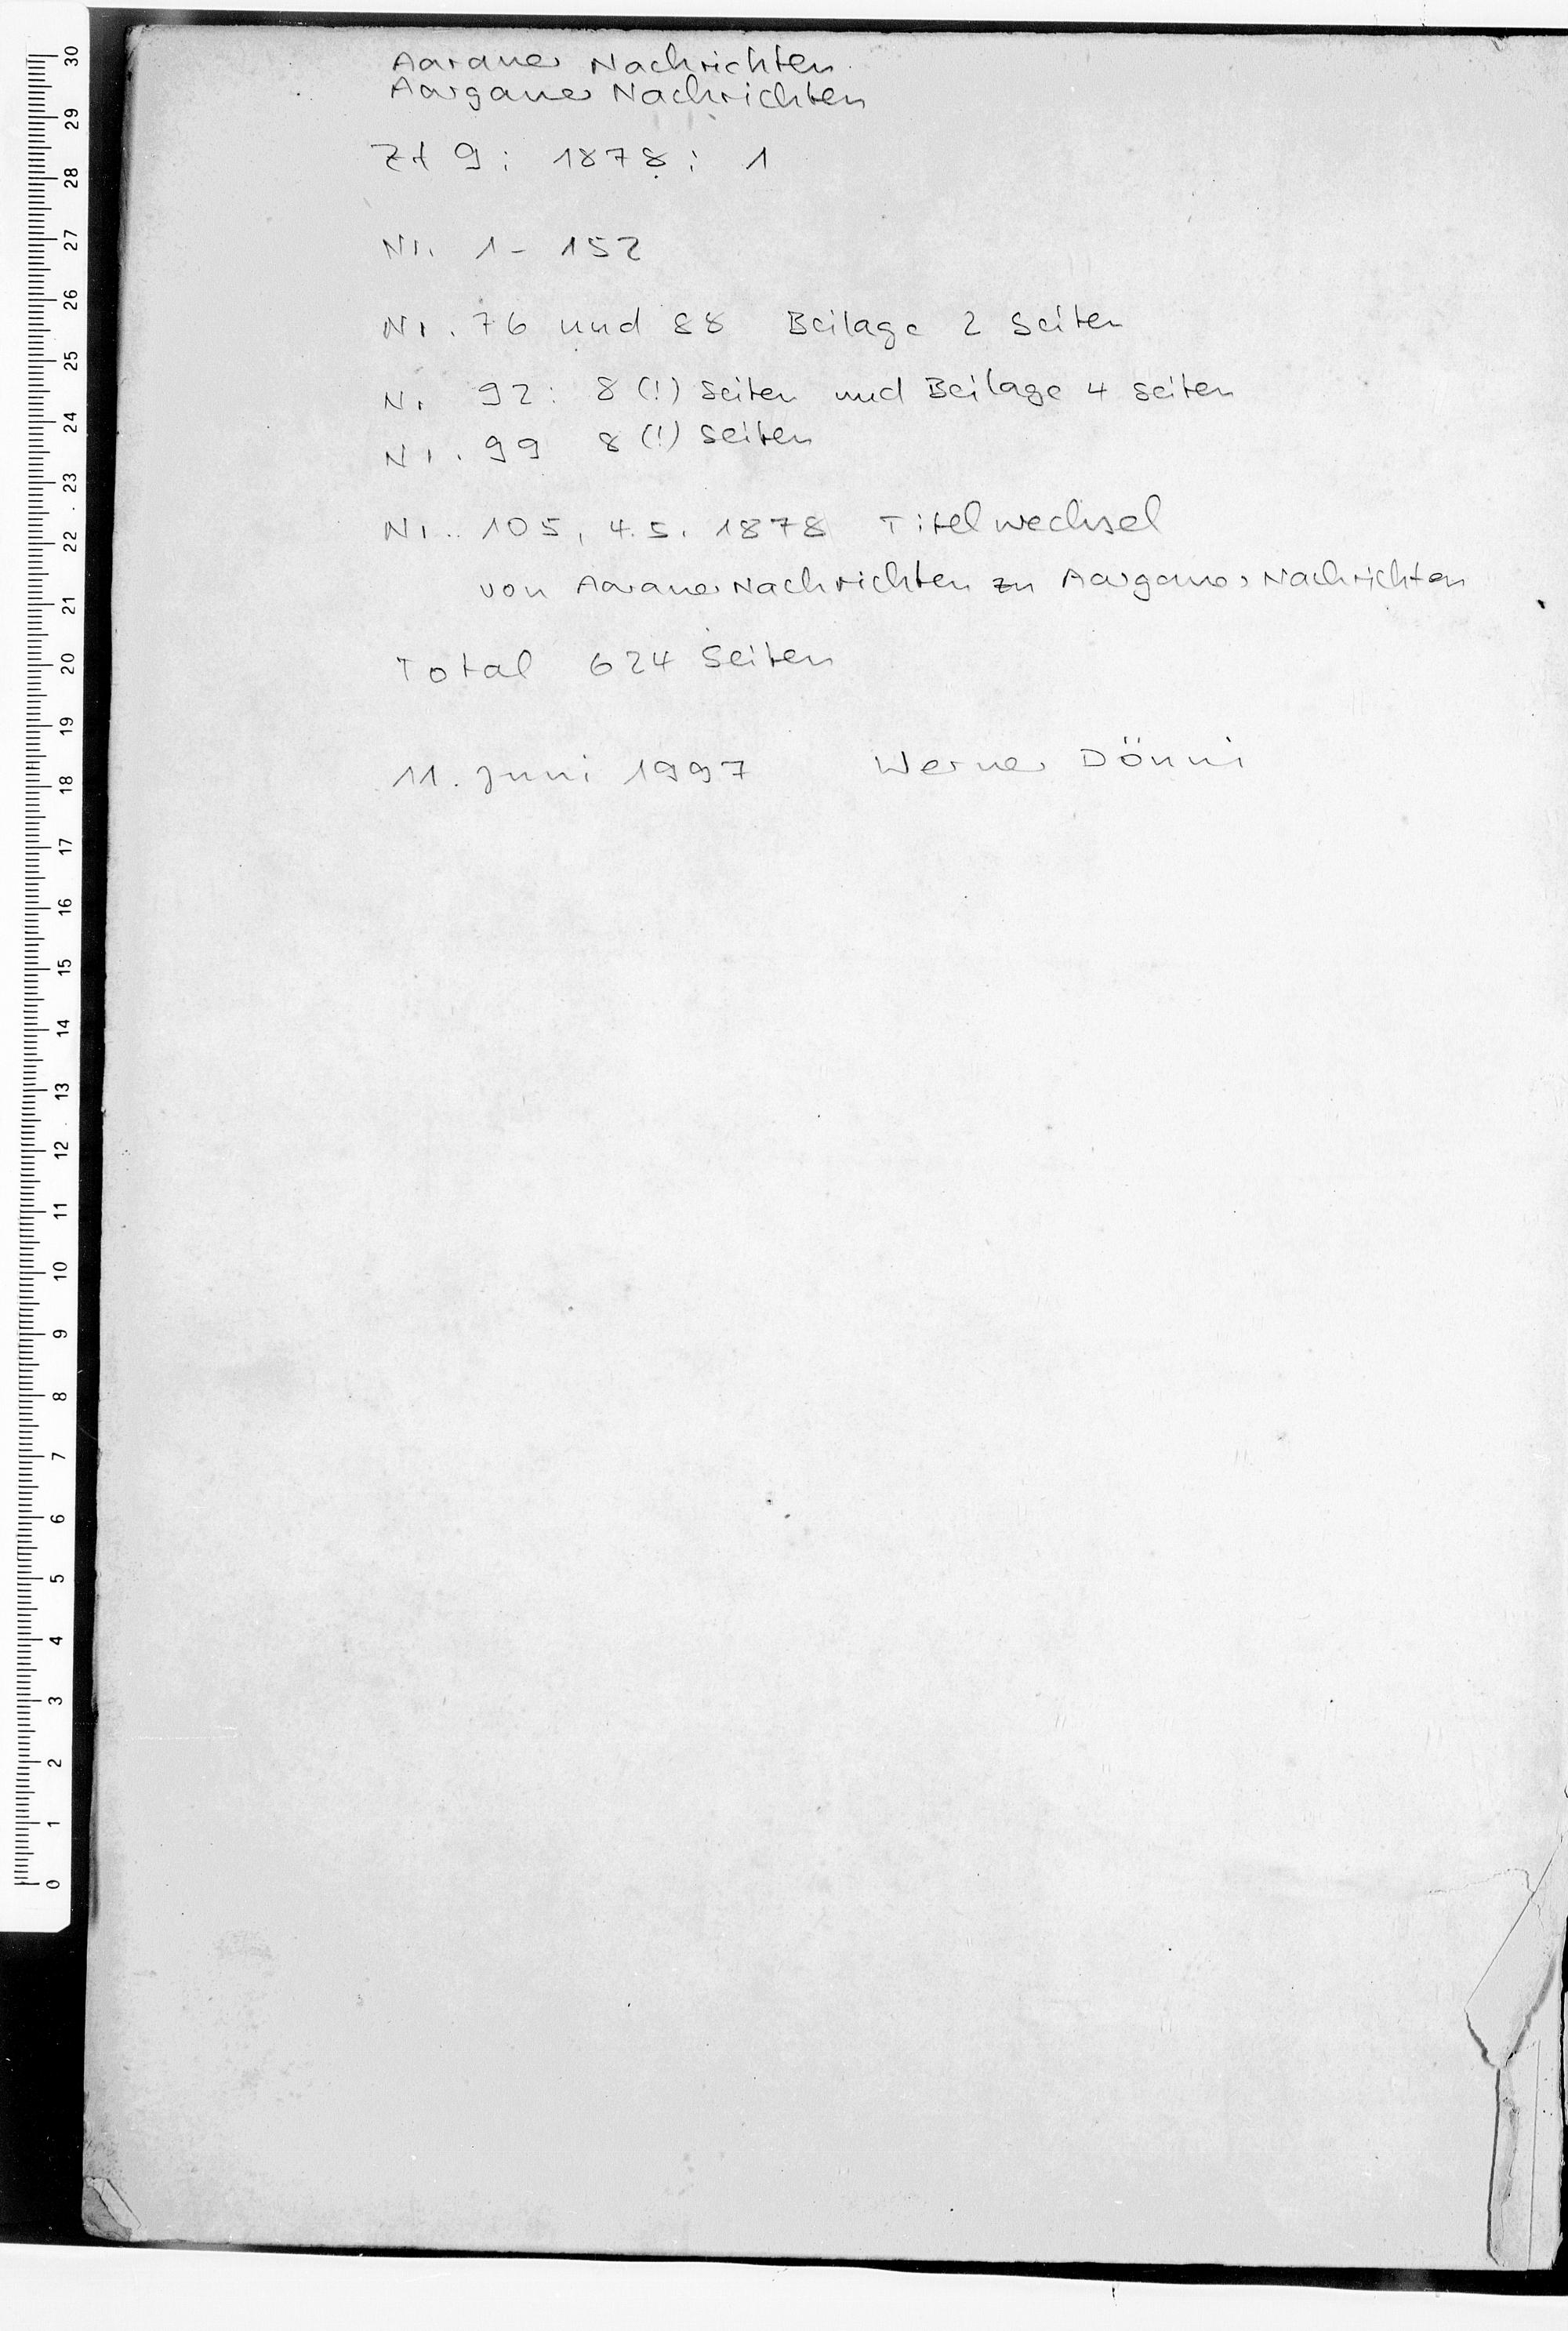 Aarauer Nachrichten
Aargauer Nachrichten
Zt 9: 1878: 1
Nr. 1 - 152
Nr. 76 und 88 Beilage 2 Seiten
Nr 92: 8 (!) Seiten und Beilage 4 Seiten
Nr. 99 8 (!) Seiten
Nr. 105, 4.5. 1878 Titelwechsel
von Aarauer Nachrichten zu Aargauer Nachrichten
Total 624 Seiten
11. Juni 1997 Werner Dönni
30
29
28
27
26
25
24
23
22
21
20
19
18
17
16
15
14
13
12
11
10
9
8
7
6
5
4
3
2
1
0